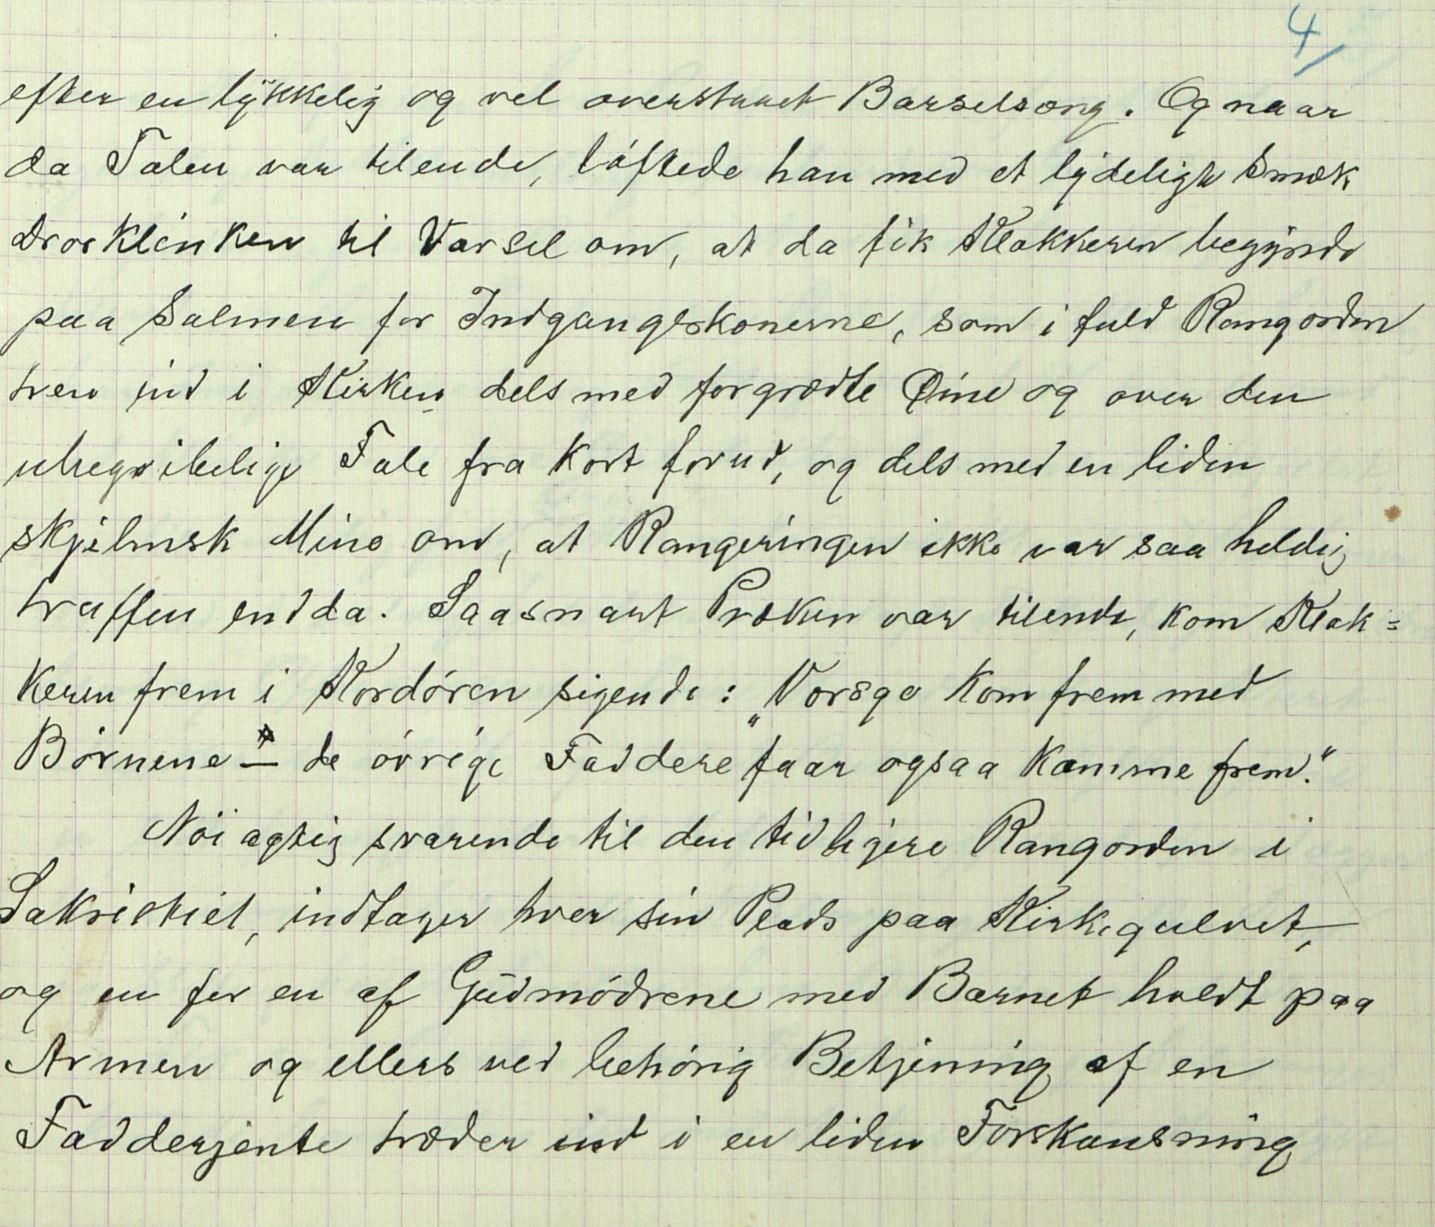 4/
efter en lykkelig og vel overstaaet Barselseng. Og naar
da Talen var tilende, löftede han med et lydeligt Smæk
Dörklinken til Varsel om, at da fik Klokkeren begynde
paa Salmen for Indgangskonerne, som i fuld Rangorden
tren ind i Kirken dels med forgrædte Øine og over den
ubegribelige Tale fra kort forud, og dels med en liden
skjelmsk Mine om, at Rangeringen ikke var saa heldig
truffen endda. Saasnart Præken var tilende, kom Klok=
keren frem i Kordören sigende: „Vorsgo kom frem med
Börnene – de övrige Faddere faar ogsaa komme frem."
Nöiagtig svarende til den tidligere Rangorden i
Sakristiet, indtager hver sin Plads paa Kirkegulvet,
og en for en af Gudmödrene med Barnet holdt paa
Armen og ellers ved behörig Betjening af en
Fadderjente træder ind i en liden Forskansning